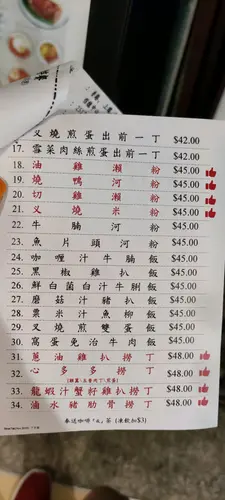 叉燒煎蛋出前一丁 $42.00
17. 雪菜肉絲煎蛋出前一丁 $42.00
18. 油雞瀨粉 $45.00
19. 燒鴨河粉 $45.00
20. 切雞瀨粉 $45.00
21. 叉燒米粉 $45.00
22. 牛腩河 $45.00
23. 魚片頭河 $45.00
24. 咖喱汁牛腩飯 $45.00
25. 黑椒雞扒飯 $45.00
26. 鮮白菌白汁牛脷飯 $45.00
27. 磨菇汁豬扒飯 $45.00
28. 粟米汁魚柳飯 $45.00
29. 叉燒煎雙蛋飯 $45.00
30. 窩蛋免治牛肉飯 $45.00
31. 蔥油雞扒撈丁 $48.00
32. 心多多撈丁 $48.00
33. 龍蝦汁蟹籽雞扒撈丁 $48.00
34. 滷水豬肋骨撈丁 $48.00
奉送咖啡 "or" 茶 (凍飲加$3)